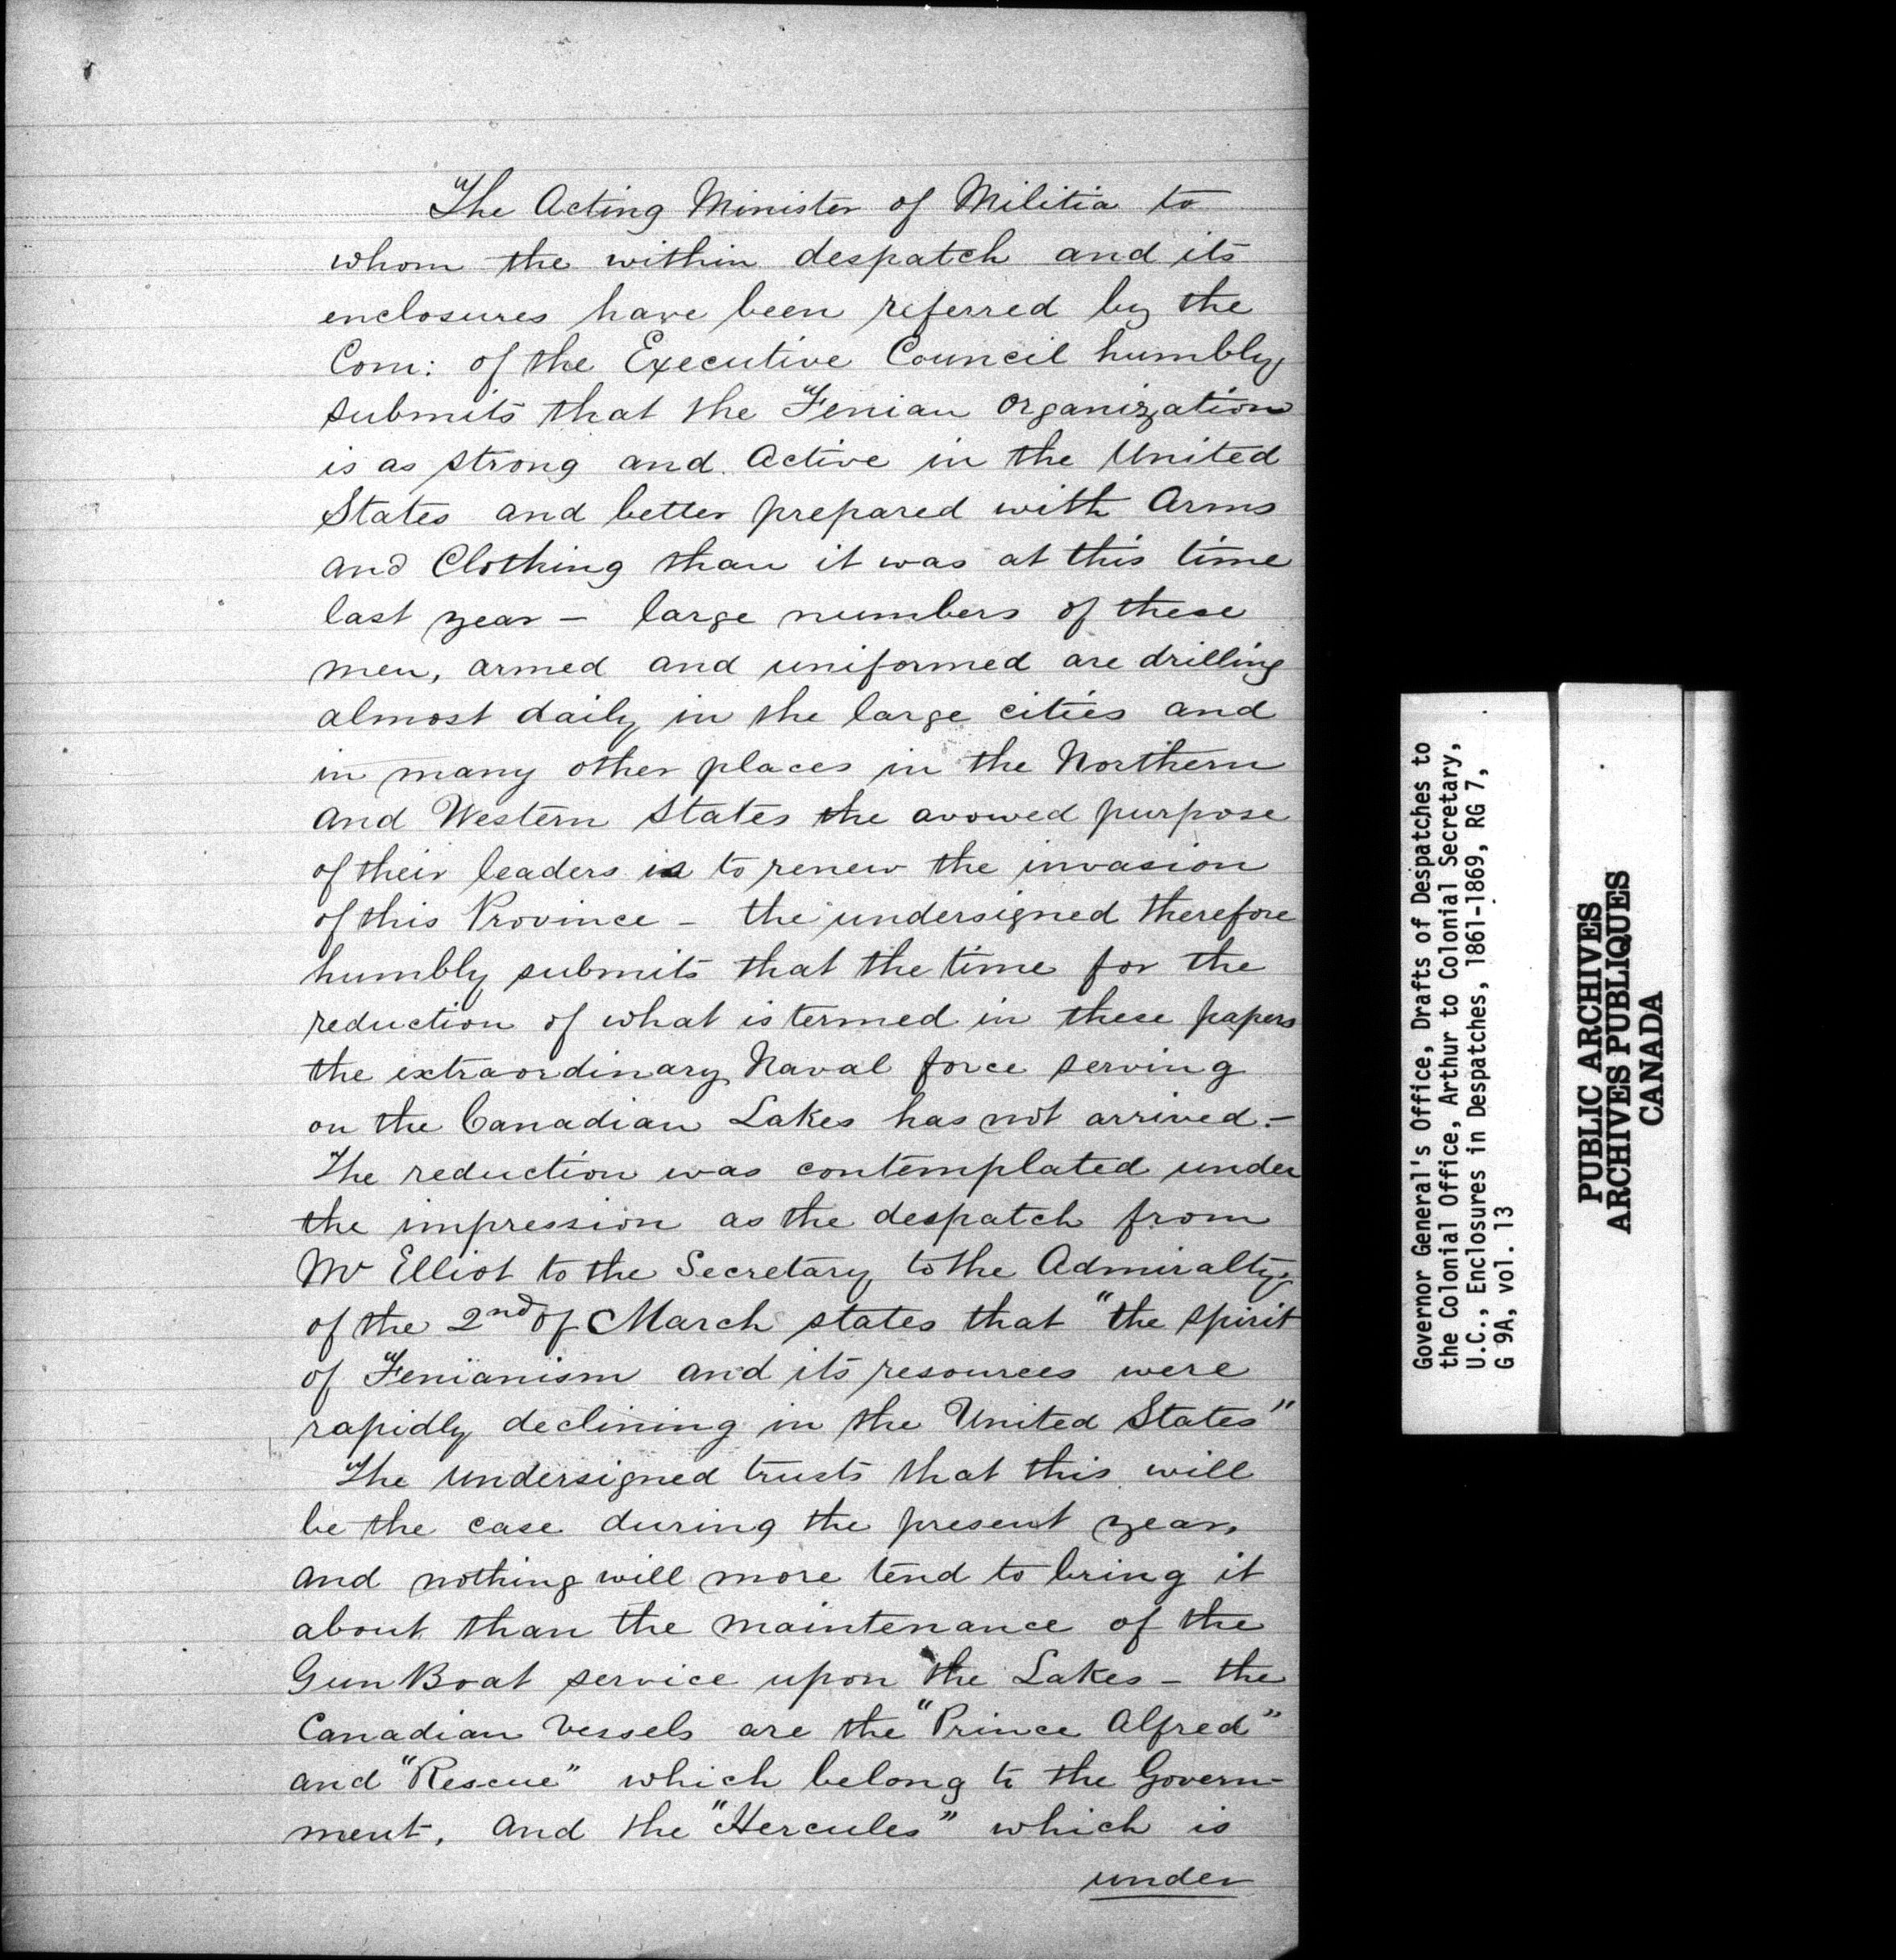 The Acting Minister of Militia to
whom the within despatch and its
enclosures have been referred by the
Com: of the Executive Council humbly
submits that the Fenian Organization
is as strong and Active in the United
States and better prepared with Arms
and Clothing than it was at this time
last year – large numbers of these
men, armed and uniformed are drilling
almost daily in the large cities and
in many other places in the Northern
and Western States the avowed purpose
of their leaders is to renew the invasion
of this Province – the undersigned therefore
humbly submits that the time for the
reduction of what is termed in these papers
the extraordinary Naval force serving
on the Canadian Lakes has not arrived. –
The reduction was contemplated under
the impression as the despatch from
Mr Elliot to the Secretary to the Admiralty,
of the 2nd of March states that "the spirit
of Fenianism and its resources were
rapidly declining in the United States"
The undersigned trusts that this will
be the case during the present year,
and nothing will more tend to bring it
about than the maintenance of the
Gun Boat service upon the Lakes – the
Canadian Vessels are the "Prince Alfred"
and "Rescue" which belong to the Govern-
ment, and the "Hercules" which is
under
Governor General's Office, Drafts of Despatches to
the Colonial Office, Arthur to Colonial Secretary,
U.C., Enclosures in Despatches, 1861-1869, RG 7,
G 9A, vol. 13
PUBLIC ARCHIVES
ARCHIVES PUBLIQUES
CANADA